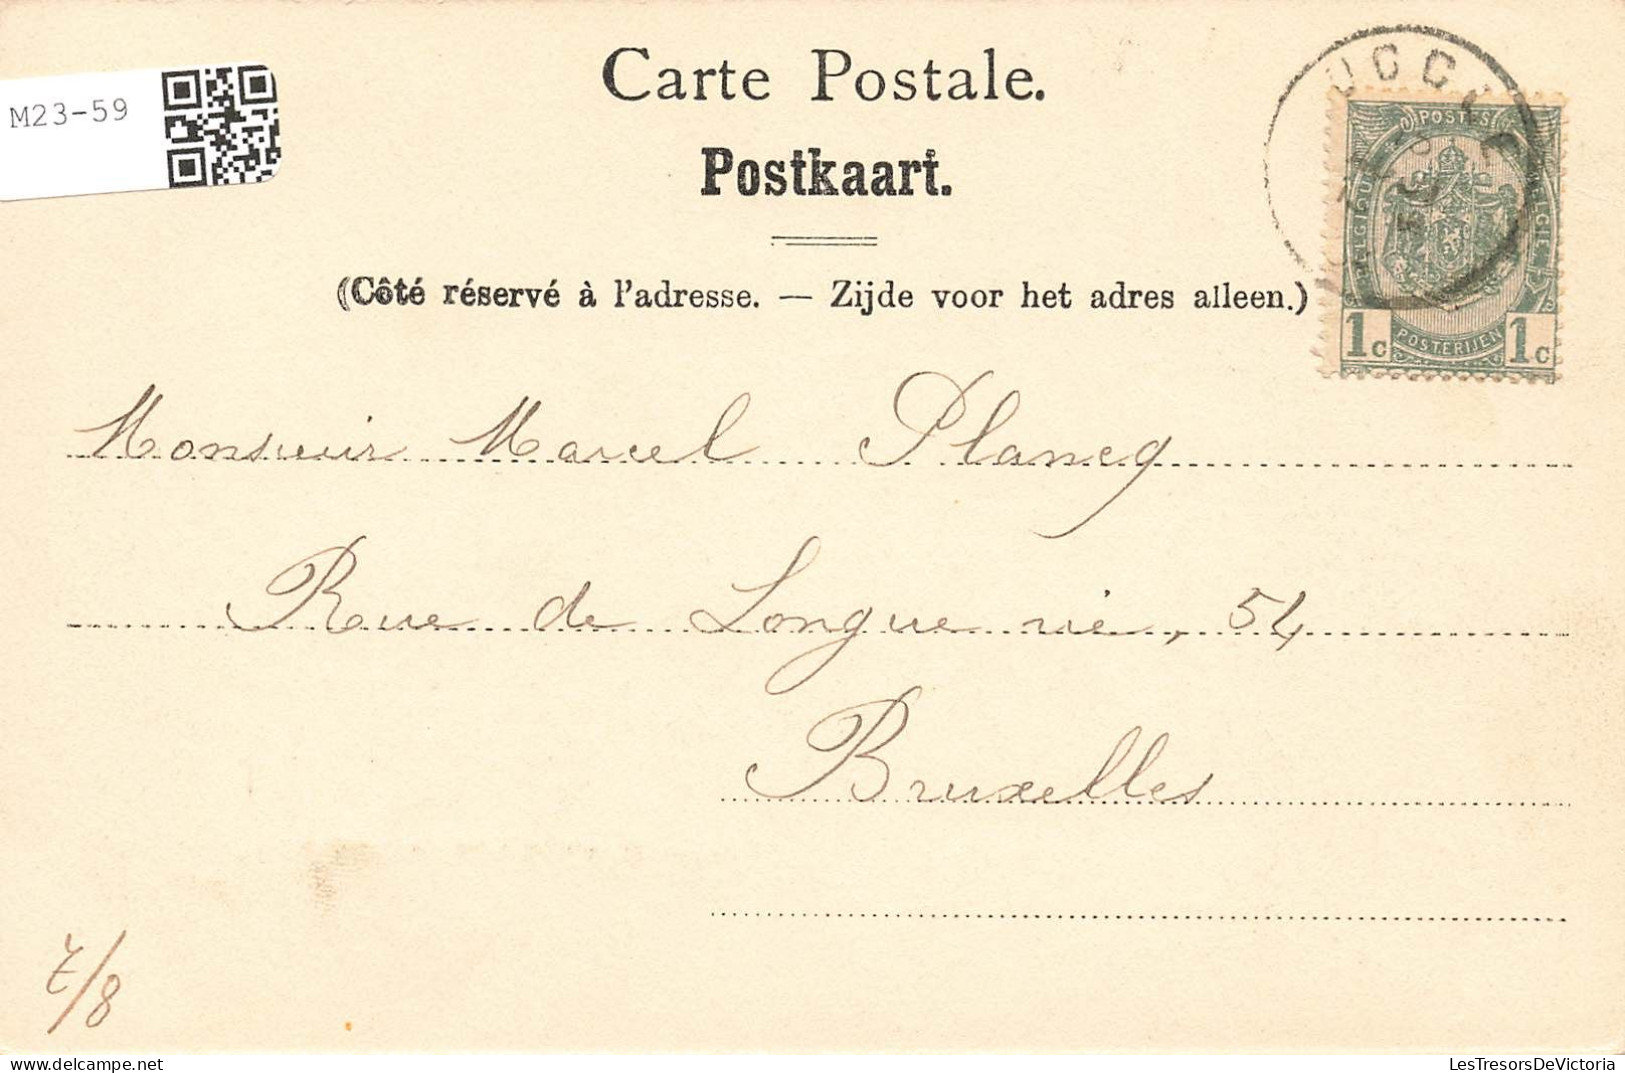 M23-59
Carte Postale.
Postkaart.
(Côté réservé à l'adresse. — Zijde voor het adres alleen.)
UCCLE
POSTES
BELGIQUE
BELGIË
1c
POSTERIJEN
1c
Monsieur Marcel Plancq
Rue de Longue vie, 54
Bruxelles
7/8
delcampe.net
LesTresorsDeVictoria